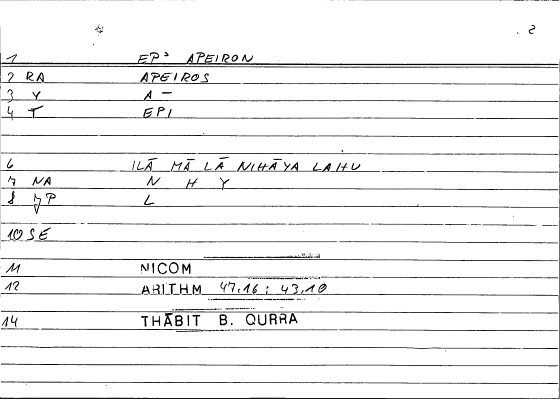 2
1 EP' APEIRON
2 RA APEIROS
3 Y A -
4 T EPI
6 ILĀ MĀ LĀ NIHĀYA LAHU
7 NA N H Y
8 JP L
10 SE
11 NICOM
12 ARITHM 47,16; 43,10
14 THĀBIT B. QURRA